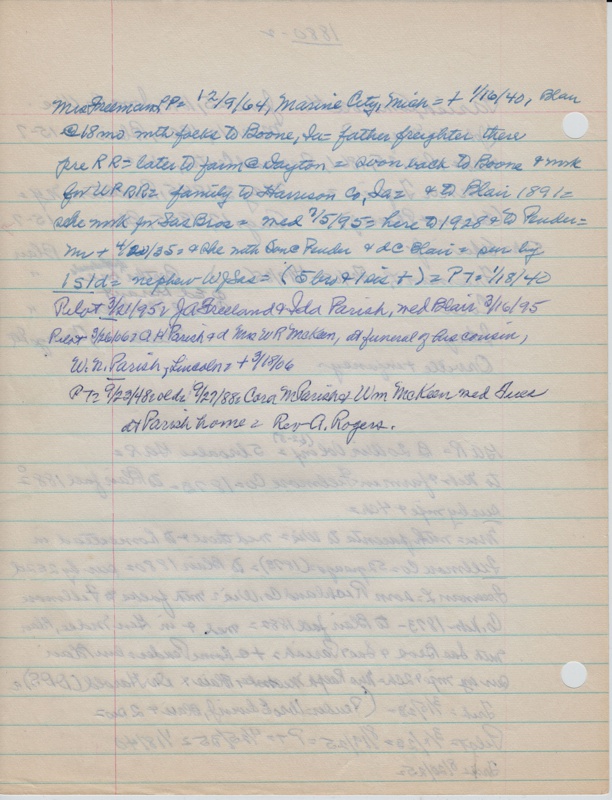 Mrs Freeman PP= 12/9/64, Marine City, Mich = + 1/16/40, Blair
@ 18 mo mth focks to Boone, Ia = father freighter there
pre RR = later to farm @ Dayton = soon back to Boone & mrk
for UP RR = family to Harrison Co, Ia = & to Blair 1891 =
she mrk for Sas Bros = med 7/5/95 = here to 1928 & to Pender =
Mr + 4/20/35 = & she mth Son C Pender & d C Blair = sur by
1 s 1 d = nephew W Sas = (5 bro & 1 sis +) = PT= 1/18/40
Pilot 3/21/95 J A Freeland & Ida Parish, med Blair 3/16/95
Pilot 3/26/06 = A H Parish & d Mrs W R McKeen, at funeral of his cousin,
W. N. Parish, Lincoln = + 3/18/06
PT= 9/23/48 olds 9/27/88 Cora M Parish & Wm McKeen med Tues
at Parish home = Rev A. Rogers.